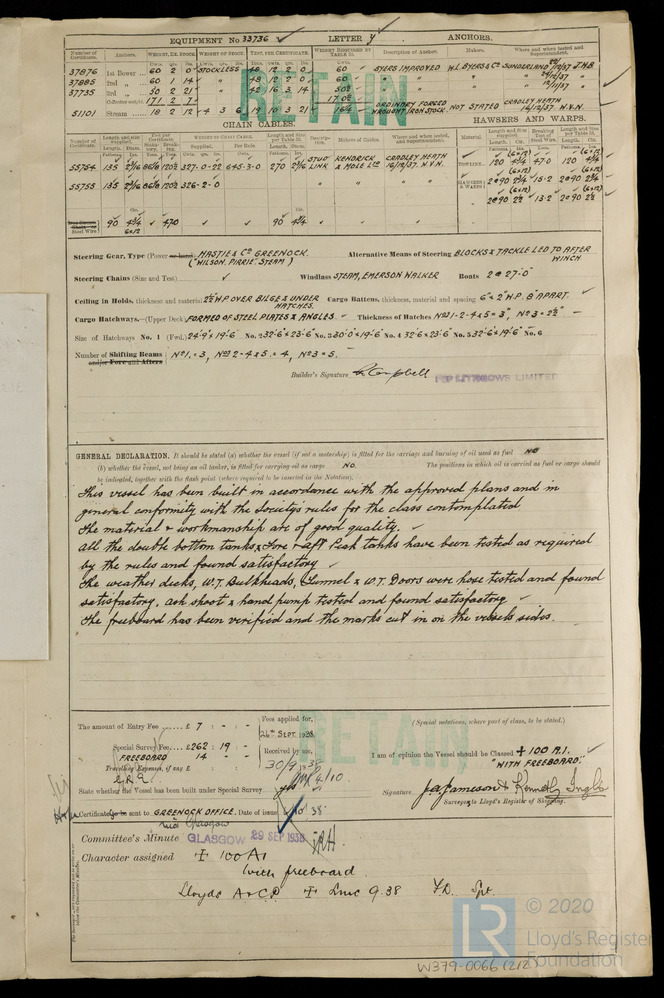 EQUIPMENT No 33736 LETTER y ANCHORS.
Number of Certificate. Anchors. WEIGHT, EX. STOCK. WEIGHT OF STOCK. TEST, PER CERTIFICATE. WEIGHT REQUIRED BY TABLE 53. Description of Anchor. Makers. Where and when tested and Superintendent.
37876 1st Bower 60 2 0 STOCKLESS 48 12 2 0 60 BYERS IMPROVED W.L. BYERS & Co SUNDERLAND 12/37 J.H.B
37885 2nd " 60 1 14 48 12 2 0 60 " " " 12/37
37735 3rd " 50 2 21 42 16 3 14 50½ " " " 12/11/37
Collective weight 171 2 7 170½
51101 Stream 18 2 12 4 3 6 19 10 3 21 16½ ORDINARY FORGED WROUGHT IRON STOCK NOT STATED CRADLEY HEATH 14/12/37 W.V.N.
CHAIN CABLES. HAWSERS AND WARPS.
Number of Certificate. Length and size supplied. Test per Certificate. WEIGHT OF CHAIN CABLE. Length and Size per Table 53. Description. Makers of Cables. Where and when tested, and Superintendent. Material Length and Size supplied. Breaking Test of Steel Wire. Length and Size per Table 53.
55754 135 2 5/16 86/8 120½ 327-0-22 645-3-0 270 2 5/16 STUD LINK KENDRICK & MOLE LTD CRADLEY HEATH 16/12/37. W.V.N. TOWLINE 120 4¾ 47·0 120 4¾
55755 135 2 5/16 86/8 120½ 326-2-0 " " " HAWSERS & WARPS 2@90 2¾ 15·2 2@90 2¾
2@90 2½ 13·2 2@90 2½
Steel Wire 90 4¾ 6x12 47·0 90 4¾
Steering Gear, Type (Power or hand) HASTIE & Co GREENOCK. ("WILSON, PIRRIE" STEAM) Alternative Means of Steering BLOCKS & TACKLE LED TO AFTER WINCH
Steering Chains (Size and Test) ✓ Windlass STEAM, EMERSON WALKER Boats 2 @ 27'-0"
Ceiling in Holds, thickness and material 2½" W.P. OVER BILGE & UNDER HATCHES. Cargo Battens, thickness, material and spacing 6" x 2" W.P. 8" APART.
Cargo Hatchways.—(Upper Deck) FORMED OF STEEL PLATES & ANGLES. Thickness of Hatches Nos 1-2-4 & 5 = 3", No 3 = 2½"
Size of Hatchways No. 1 (Fwd.) 24'-9" x 19'-6" No. 2 32'-6" x 23'-6" No. 3 30'-0" x 19'-6" No. 4 32'-6" x 23'-6" No. 5 32'-6" x 19'-6" No. 6
Number of Shifting Beams and/or Fore and Afters No 1 = 3, Nos 2-4 & 5 = 4, No 3 = 5.
Builder's Signature Campbell
FOR LITHGOWS LIMITED
RETAIN
GENERAL DECLARATION. It should be stated (a) whether the vessel (if not a motorship) is fitted for the carriage and burning of oil used as fuel NO
(b) whether the vessel, not being an oil tanker, is fitted for carrying oil as cargo NO. The positions in which oil is carried as fuel or cargo should
be indicated, together with the flash point (where required to be inserted in the Notation).
This vessel has been built in accordance with the approved plans and in
general conformity with the Society's rules for the class contemplated
The material & workmanship are of good quality.
All the double bottom tanks & Fore & Aft Peak tanks have been tested as required
by the rules and found satisfactory
The weather decks, W.T. Bulkheads, Tunnel & W.T. Doors were hose tested and found
satisfactory. Ash shoot & hand pump tested and found satisfactory
The freeboard has been verified and the marks cut in on the vessels sides.
RETAIN
The amount of Entry Fee £ 7 : - : - Fees applied for, 26th SEPT. 1938. (Special notations, where part of class, to be stated.)
Special Survey Fee £262 : 19 : -
FREEBOARD 14 - -
Received by me, 30/9 1938
Travelling Expenses, if any £
I am of opinion the Vessel should be Classed ✠ 100 A.1. "WITH FREEBOARD"
State whether the Vessel has been built under Special Survey yes
Signature J.A. Jameson & Kenneth Inglis
Surveyors to Lloyd's Register of Shipping.
Certificate to be sent to GREENOCK OFFICE. Date of issue 10 38
Committee's Minute GLASGOW 29 SEP 1938
Character assigned ✠ 100 A1
with freeboard
Lloyds A & CP ✠ LMC 9.38 F.D. Spt.
© 2020
LR
Lloyd's Register
Foundation
W379-0066 1212